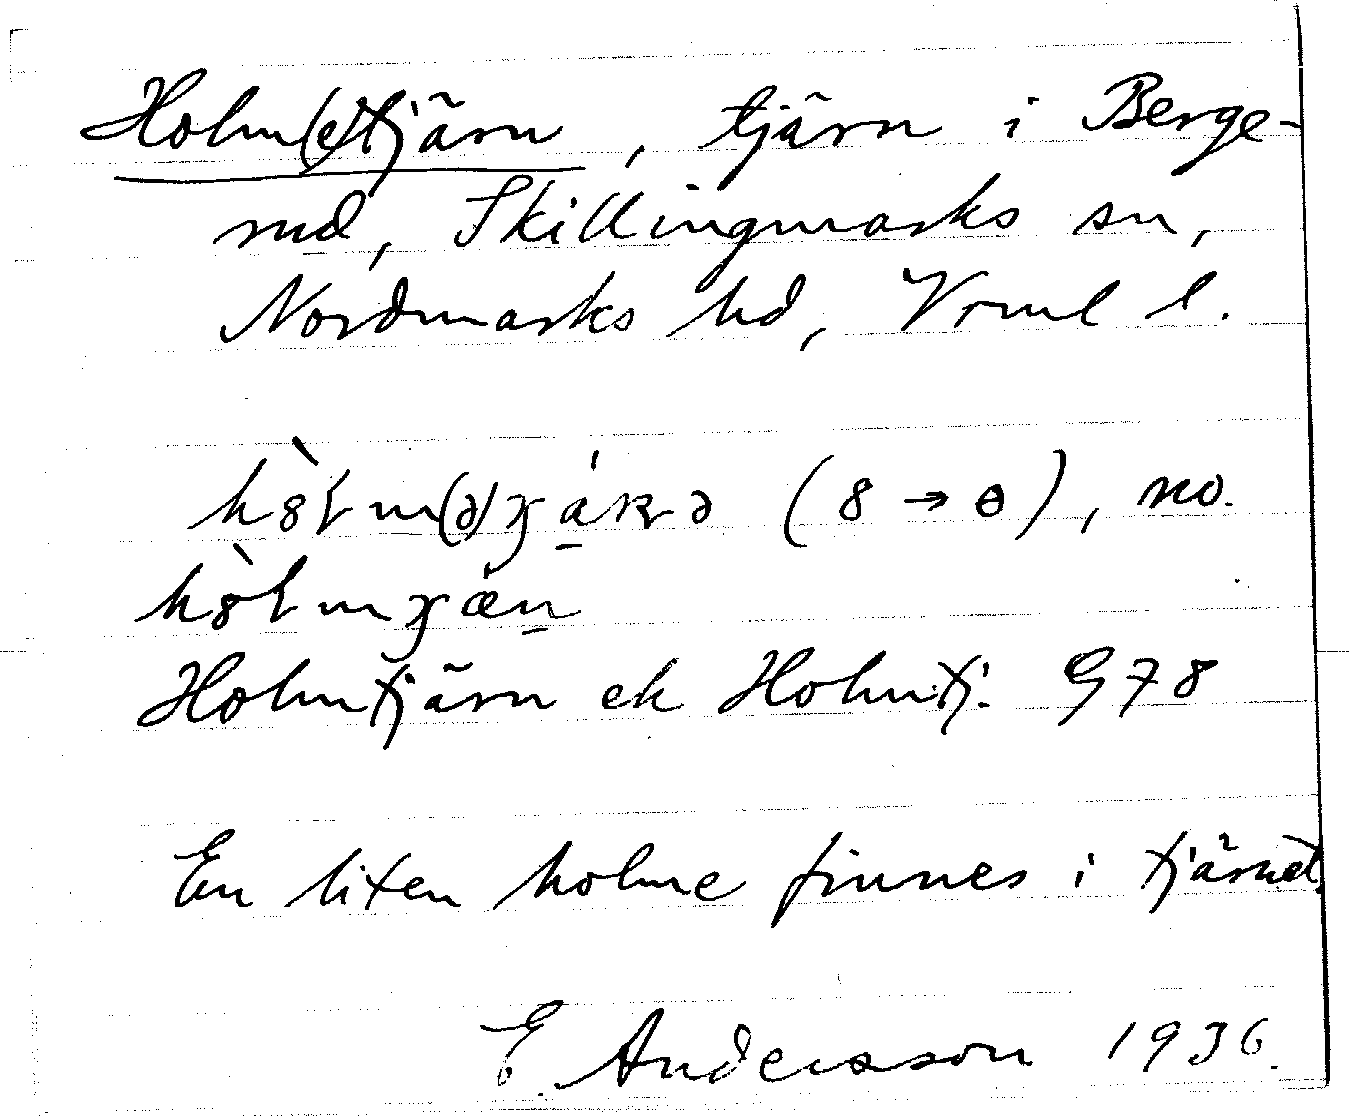 Holm(e)tjärn, tjärn i Berge-
rud, Skillingmarks sn,
Nordmarks hd, Vrml l.
(8 → ɵ), no.
Holmtjärn ek Holmtj. G78
En liten holme finnes i tjärnet.
E. Andersson 1936.